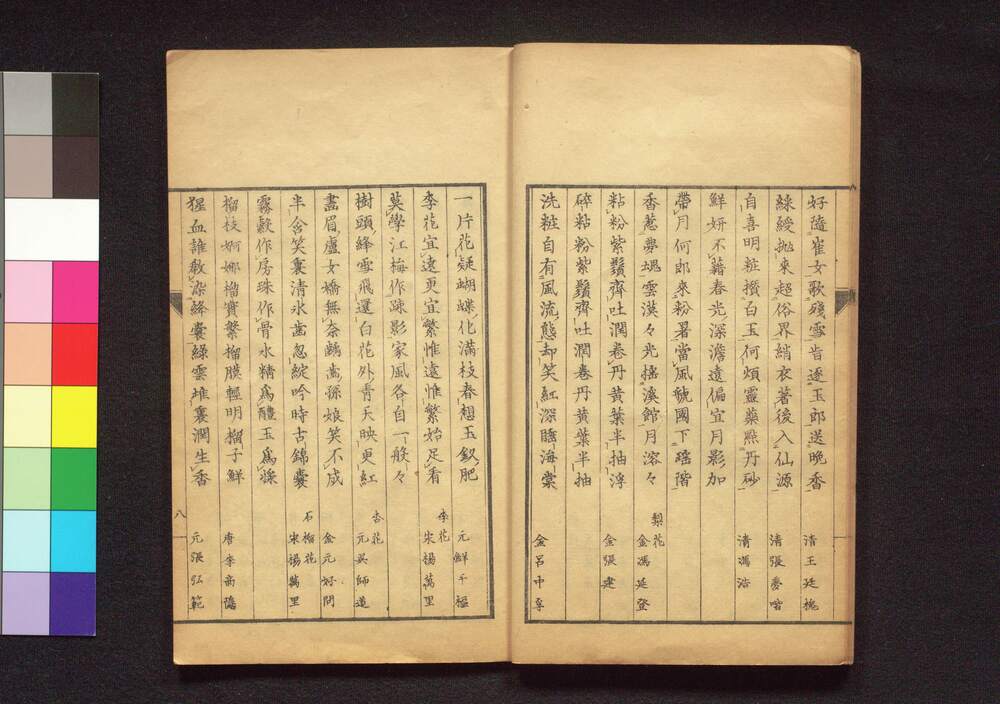 好隨崔女歌殘雪旹逐玉郎送晚香 清王廷槐
綠綬拋來超俗界綃衣著後入仙源 清張
自喜明粧攢白玉何煩靈藥點丹砂 清馮浩
鮮妍不藉春光深澹遠偏宜月影加
帶月何郎來粉署當風虢國下瑤階
梨花
香蔥夢塊雲漠々光搖溪館月溶々 金馮延登
粘粉紫鬚齊吐潤卷丹黃葉半抽浮 金張建
碎粘粉紫鬚齊吐潤卷丹黃葉半抽
洗粧自有風流態却笑紅深睡海棠 金呂中孚
一片花疑蝴蝶化滿枝春想玉釵肥 元鮮于樞
李花
李花宜遠更宜繁惟遠惟繁始足看 宋楊萬里
莫學江梅作疎影家風各自一般々
杏花
樹頭絳雪飛還白花外青天映更紅 元吳師道
畫眉盧女嬌無奈齲齒孫娘笑不成 金元好問
石榴花
半含笑裏清冰齒忽綻吟時古錦囊 宋楊萬里
霧縠作房珠作骨水精爲醴玉爲漿
榴枝婀娜榴實繁榴膜輕明榴子鮮 唐李商隱
猩血誰教染絳囊綠雲堆裏潤生香 元張弘範
八